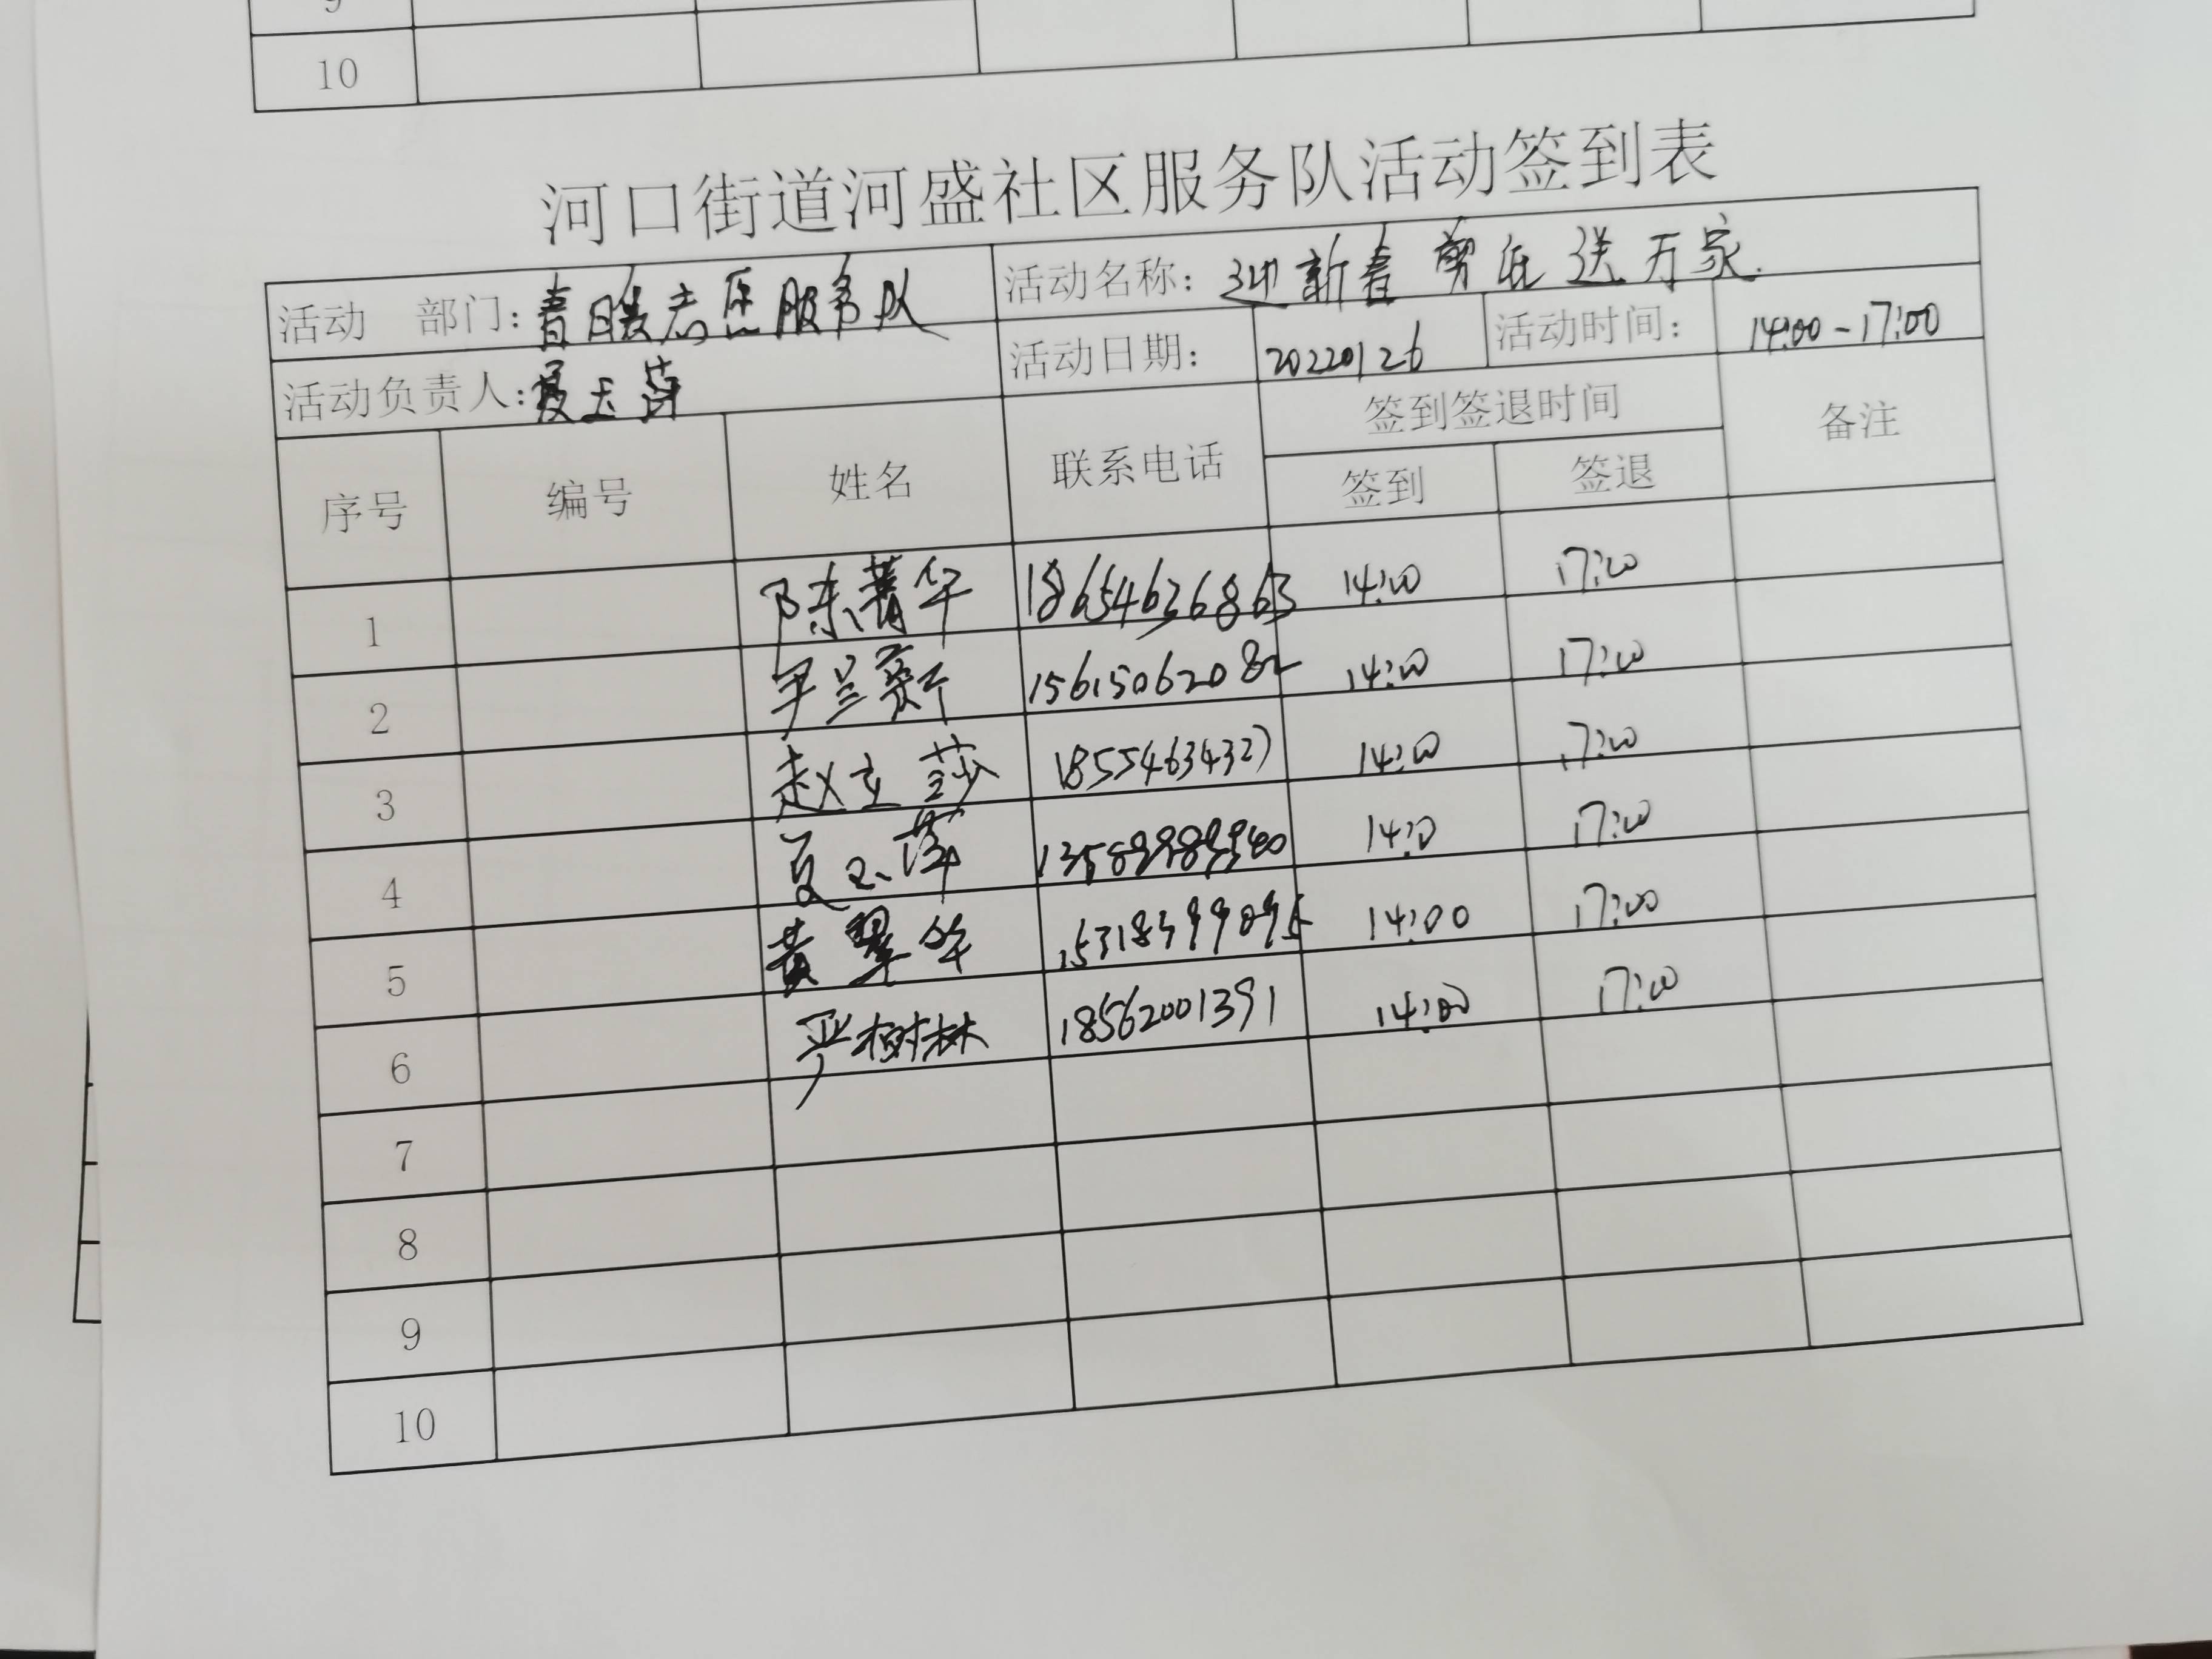 10
河口街道河盛社区服务队活动签到表
活动 部门：春暖志愿服务队 活动名称：迎新春 剪纸送万家.
活动负责人： 活动日期： 20220126 活动时间： 14:00-17:00
序号 编号 姓名 联系电话 签到签退时间 备注
签到 签退
1 陈菁华 18654636863 14:00 17:00
2 15615062082 14:00 17:00
3 赵立莎 18554634327 14:00 17:00
4 14:0 17:00
5 黄翠华 15318399095 14:00 17:00
6 严树林 18562001391 14:00 17:00
7
8
9
10